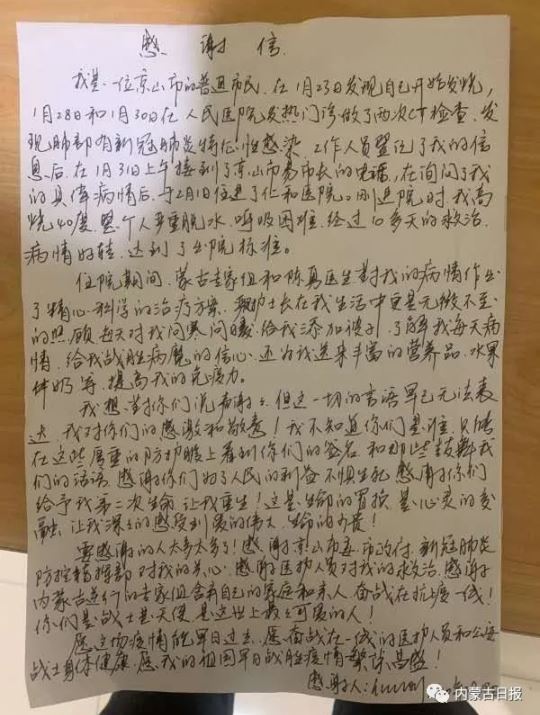 感谢信
我是一位京山市的普通市民，在1月23日发现自己开始发烧，
1月28日和1月30日在人民医院发热门诊做了两次CT检查，发
现肺部有新冠肺炎特征性感染，工作人员登记了我的信
息后，在1月31日上午接到了京山市易市长的电话，在询问了我
的具体病情后，于2月1日住进了仁和医院。刚进院时，我高
烧40度，整个人严重脱水，呼吸困难，经过10多天的救治，
病情好转，达到了出院标准。
住院期间，蒙古专家组和陈真医生对我的病情作出
了精心科学的治疗方案，护士长在我生活中更是无微不至
的照顾，每天对我问寒问暖，给我添加被子，了解我每天病
情，给我战胜病魔的信心，还为我送来丰富的营养品，水果
牛奶等，提高我的免疫力。
我想对你们说声谢谢，但这一切的言语早已无法表
达，我对你们的感激和敬意！我不知道你们是谁，只能
在这些厚重的防护服上看到你们的签名，和那些鼓舞我
们的话语，感谢你们为了人民的利益不惧生死，感谢你们
给予我第二次生命，让我重生！这是生命的置换，是心灵的交
融，让我深深的感受到爱的伟大，生命的可贵！
要感谢的人太多太多了！感谢京山市委、市政府、新冠肺炎
防控指挥部对我的关心，感谢医护人员对我的救治，感谢
内蒙古逆行的专家组舍有自己的家庭和亲人，奋战在抗疫一线！
你们是战士是天使，是这世上最最可爱的人！
愿这场疫情能早日过去，愿奋战在一线的医护人员和公安
战士身体健康，愿我的祖国早日战胜疫情繁荣昌盛！
感谢人：
内蒙古日报